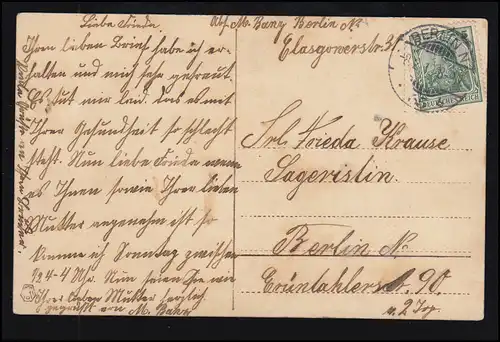 Liebe Frieda
Ihren lieben Brief habe ich er-
halten und mich sehr gefreut.
Es tut mir leid. das es mit
Ihrer Gesundheit so schlecht
steht. Nun liebe Frieda wenn
es Ihnen sowie Ihrer lieben
Mutter angenehm ist so
komme ich Sonntag zwischen
1/2 4-4 Uhr. Nun seien Sie wie
Ihre lieben Mutter herzlich
gegrüßt von M. Bahr
Abs. M. Berlin N.
Glasgowerstr. 31
BERLIN N
Frl. Frieda Krause
Lageristin.
Berlin N.
Grüntahlerstr. 90
v. 2 Trp.